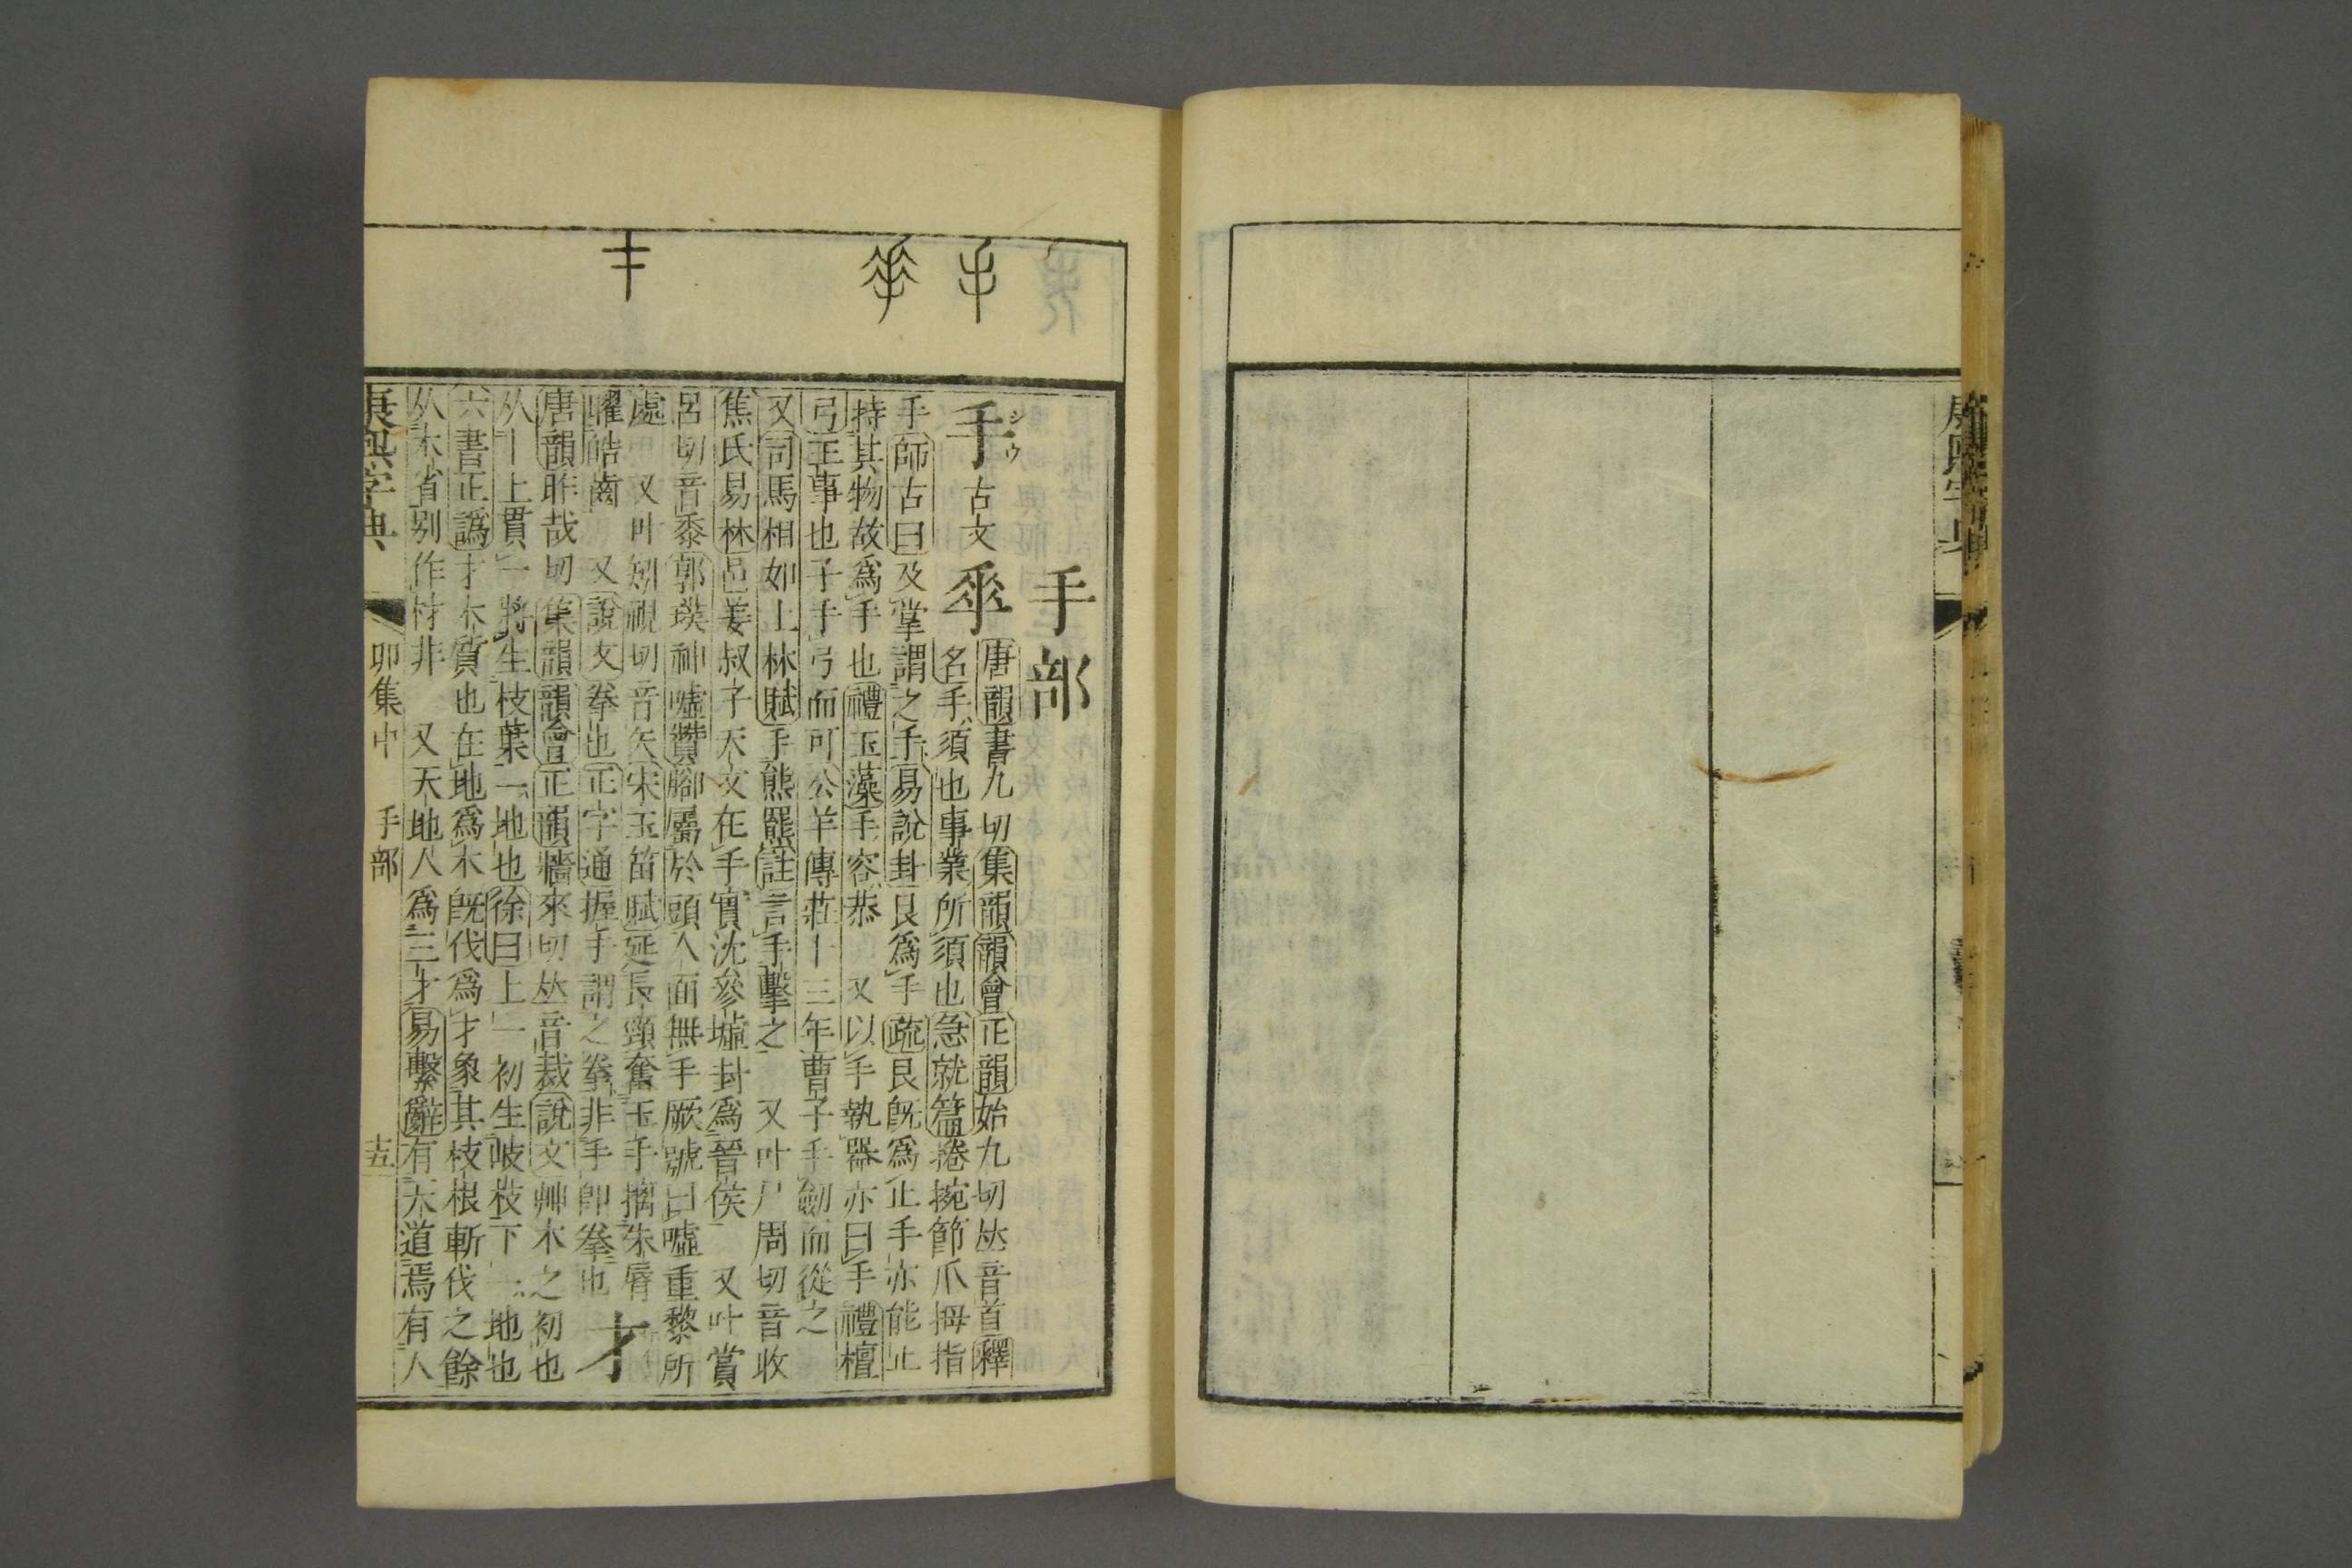 手部
手 古文 𠂿
シウ
唐韻書九切集韻韻會正韻始九切𠀤音首釋
名手須也事業所須也急就篇捲捥節爪拇指
手師古曰及掌謂之手易說卦艮爲手疏艮旣爲止手亦能止
持其物故爲手也禮玉藻手容恭 又以手執器亦曰手禮檀
弓王事也子手手弓而可公羊傳莊十三年曹子手手劒而從之
又司馬相如上林賦手熊羆註言手擊之 又叶尸周切音收
焦氏易林邑姜叔子天文在手實沈參墟封爲晉侯 又叶賞
呂切音黍郭璞神噓贊腳屬於頭人面無手厥號曰噓重黎所
處 又叶矧視切音矢宋玉笛賦延長頸奮玉手摛朱脣
曜皓齒 又說文拳也正字通握手謂之拳非手卽拳也 才
唐韻昨哉切集韻韻會正韻牆來切𠀤音裁說文艸木之初也
从丨上貫一將生枝葉一地也徐曰上一初生岐枝下一地也
六書正譌才木質也在地爲木旣伐爲才象其枝根斬伐之餘
从木省別作材非 又天地人爲三才易繫辭有天道焉有人
康熙字典 卯集中 手部 十五